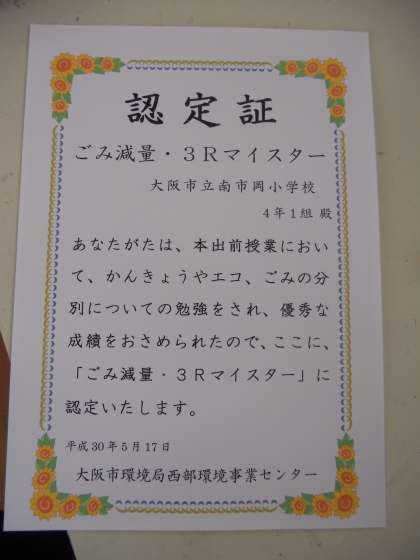 認定証
ごみ減量・3Rマイスター
大阪市立南市岡小学校
4年1組 殿
あなたがたは、本出前授業におい
て、かんきょうやエコ、ごみの分
別についての勉強をされ、優秀な
成績をおさめられたので、ここに、
「ごみ減量・3Rマイスター」に
認定いたします。
平成30年5月17日
大阪市環境局西部環境事業センター